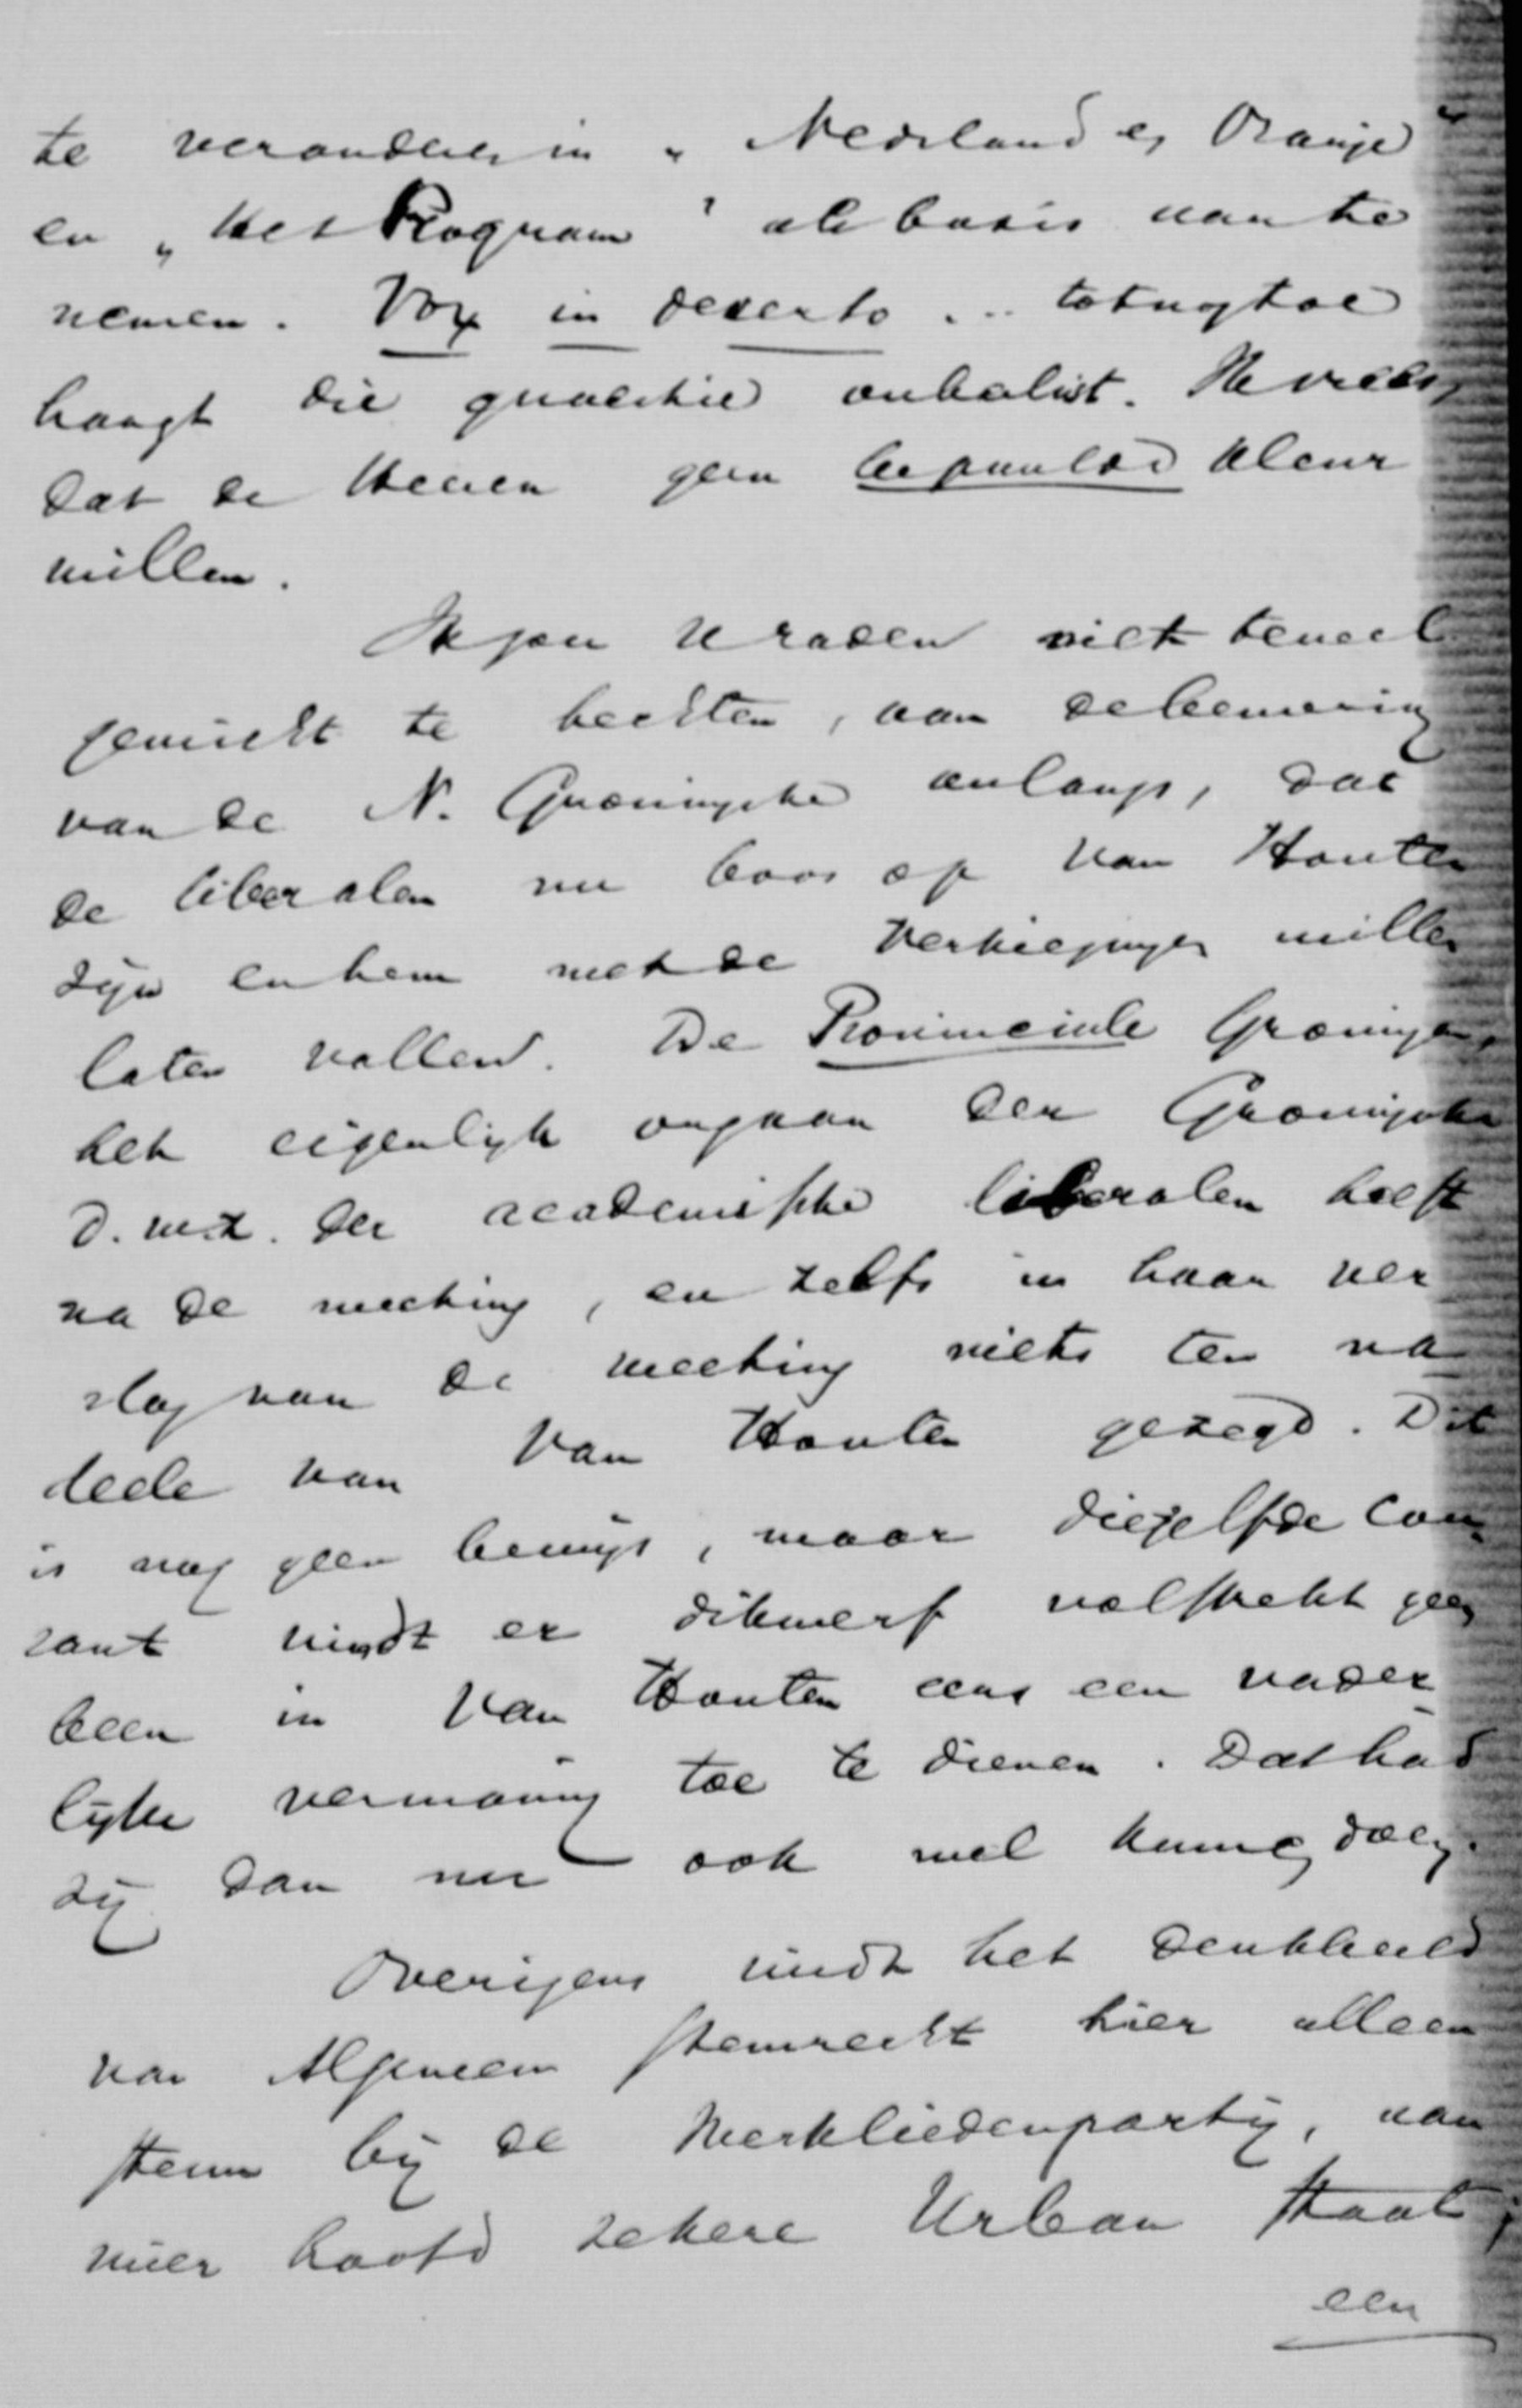 te veranderen in „Nederland en Oranje"
en „Het Program" als basis aan te
nemen. Vox in deserto ... totnogtoe
hangt die quaestie onbeslist. Ik vrees,
dat de Heeren geen bepaalde kleur
willen.
Ik zou U raden niet teveel
gewicht te hechten, aan de bewering
van de N. Groningsche onlangs, dat
de liberalen nu boos op Van Houten
zijn en hem met de verkiezingen willen
laten vallen. De Provinciale Groninger,
het eigenlijk orgaan der Groningsche
d.w.z. der academische liberalen heeft
na de meeting, en zelfs in haar ver
slag van de meeting niets ten na
deele van Van Houten gezegd. Dit
is nog geen bewijs, maar diezelfde Cou-
rant vindt er dikwerf volstrekt geen
been in Van Houten eens een vader-
lijke vermaning toe te dienen. Dat had
zij dan nu ook wel kunnen doen.
Overigens vindt het denkbeeld
van Algemeen Stemrecht hier alleen
steun bij de Werkliedenpartij, aan
wier hoofd zekere Urban staat;
een